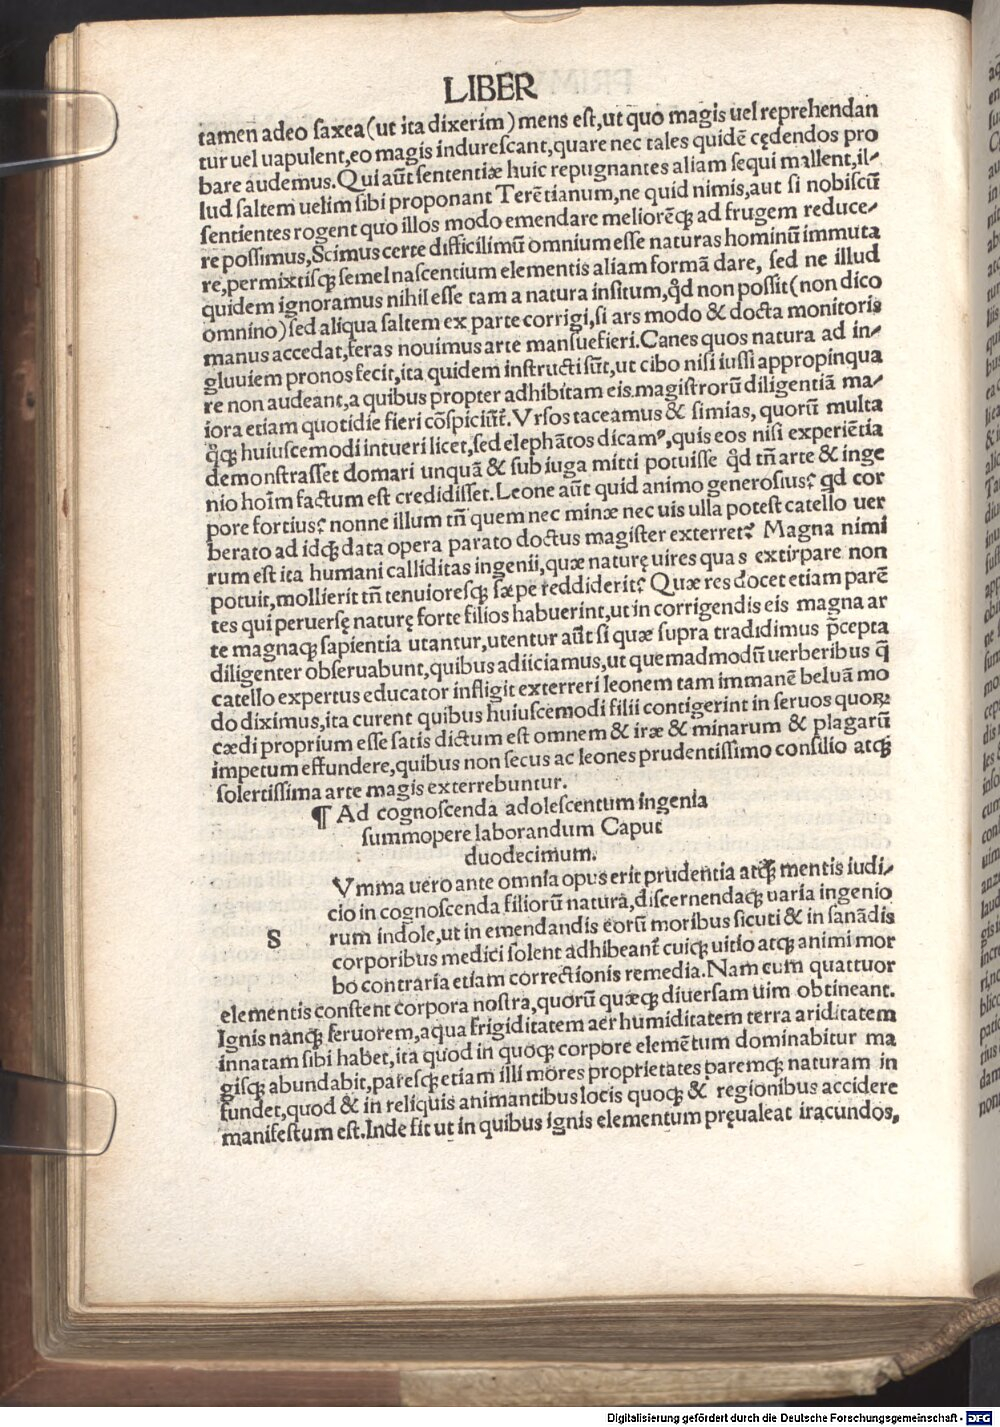 LIBER
tamen adeo ſaxea(ut ita dixerim)mens eſt,ut quo magis uel reprehendan
tur uel uapulent,eo magis indureſcant,quare nec tales quidē cędendos pro
bare audemus.Qui aūt ſententiæ huic repugnantes aliam ſequi mallent,il⸗
lud ſaltem uelim ſibi proponant Terētianum,ne quid nimis,aut ſi nobiſcū
ſentientes rogent quo illos modo emendare meliorēqꝫ ad frugem reduce⸗
re poſſimus,Scimus certe difficilimū omnium eſſe naturas hominū immuta
re,permixtiſqꝫ ſemel naſcentium elementis aliam formā dare, ſed ne illud
quidem ignoramus nihil eſſe tam a natura inſitum,qd̄ non poſſit(non dico
omnino)ſed aliqua ſaltem ex parte corrigi,ſi ars modo & docta monitoris
manus accedat,feras nouimus arte manſuefieri.Canes quos natura ad in⸗
gluuiem pronos fecit,ita quidem inſtructi ſūt,ut cibo niſi iuſſi appropinqua
re non audeant,a quibus propter adhibitam eis magiſtrorū diligentiā ma⸗
iora etiam quotidie fieri cōſpiciūt̄.Vrſos taceamus & ſimias, quorū multa
q̄qꝫ huiuſcemodi intueri licet,ſed elephātos dicamꝰ,quis eos niſi experiētia
demonſtraſſet domari unquā & ſub iuga mitti potuiſſe qd̄ tn̄ arte & inge
nio hoīm factum eſt credidiſſet.Leone aūt quid animo generoſius? qd̄ cor
pore fortius? nonne illum tn̄ quem nec minæ nec uis ulla poteſt catello uer
berato ad idqꝫ data opera parato doctus magiſter exterret? Magna nimi
rum eſt ita humani calliditas ingenii,quæ naturę uires quas extirpare non
potuit,mollierit tn̄ tenuioreſqꝫ ſæpe reddiderit? Quæ res docet etiam parē
tes qui peruerſę naturę forte filios habuerint,ut in corrigendis eis magna ar
te magnaqꝫ ſapientia utantur,utentur aūt ſi quæ ſupra tradidimus p̄cepta
diligenter obſeruabunt,quibus adiiciamus,ut quemadmodū uerberibus q̄
catello expertus educator infligit exterreri leonem tam immanē beluā mo
do diximus,ita curent quibus huiuſcemodi filii contigerint in ſeruos quorꝝ
cædi proprium eſſe ſatis dictum eſt omnem & iræ & minarum & plagarū
impetum effundere,quibus non ſecus ac leones prudentiſſimo conſilio atqꝫ
ſolertiſſima arte magis exterrebuntur.
¶ Ad cognoſcenda adoleſcentum ingenia
ſummopere laborandum Caput
duodecimum.
Vmma uero ante omnia opus erit prudentia atqꝫ mentis iudi⸗
cio in cognoſcenda filiorū natura,diſcernendaqꝫ uaria ingenio
S rum indole,ut in emendandis eorū moribus ſicuti & in ſanādis
corporibus medici ſolent adhibeant̄ cuiqꝫ uitio atqꝫ animi mor
bo contraria etiam correctionis remedia.Nam cum quattuor
elementis conſtent corpora noſtra,quorū quæqꝫ diuerſam uim obtineant.
Ignis nanqꝫ feruorem,aqua frigiditatem aer humiditatem terra ariditatem
innatam ſibi habet,ita quod in quoqꝫ corpore elemētum dominabitur ma
giſqꝫ abundabit,pareſqꝫ etiam illi mores proprietates paremqꝫ naturam in
fundet,quod & in reliquis animantibus locis quoqꝫ & regionibus accidere
manifeſtum eſt.Inde fit ut in quibus ignis elementum pręualeat iracundos,
Digitalisierung gefördert durch die Deutsche Forschungsgemeinschaft - DFG